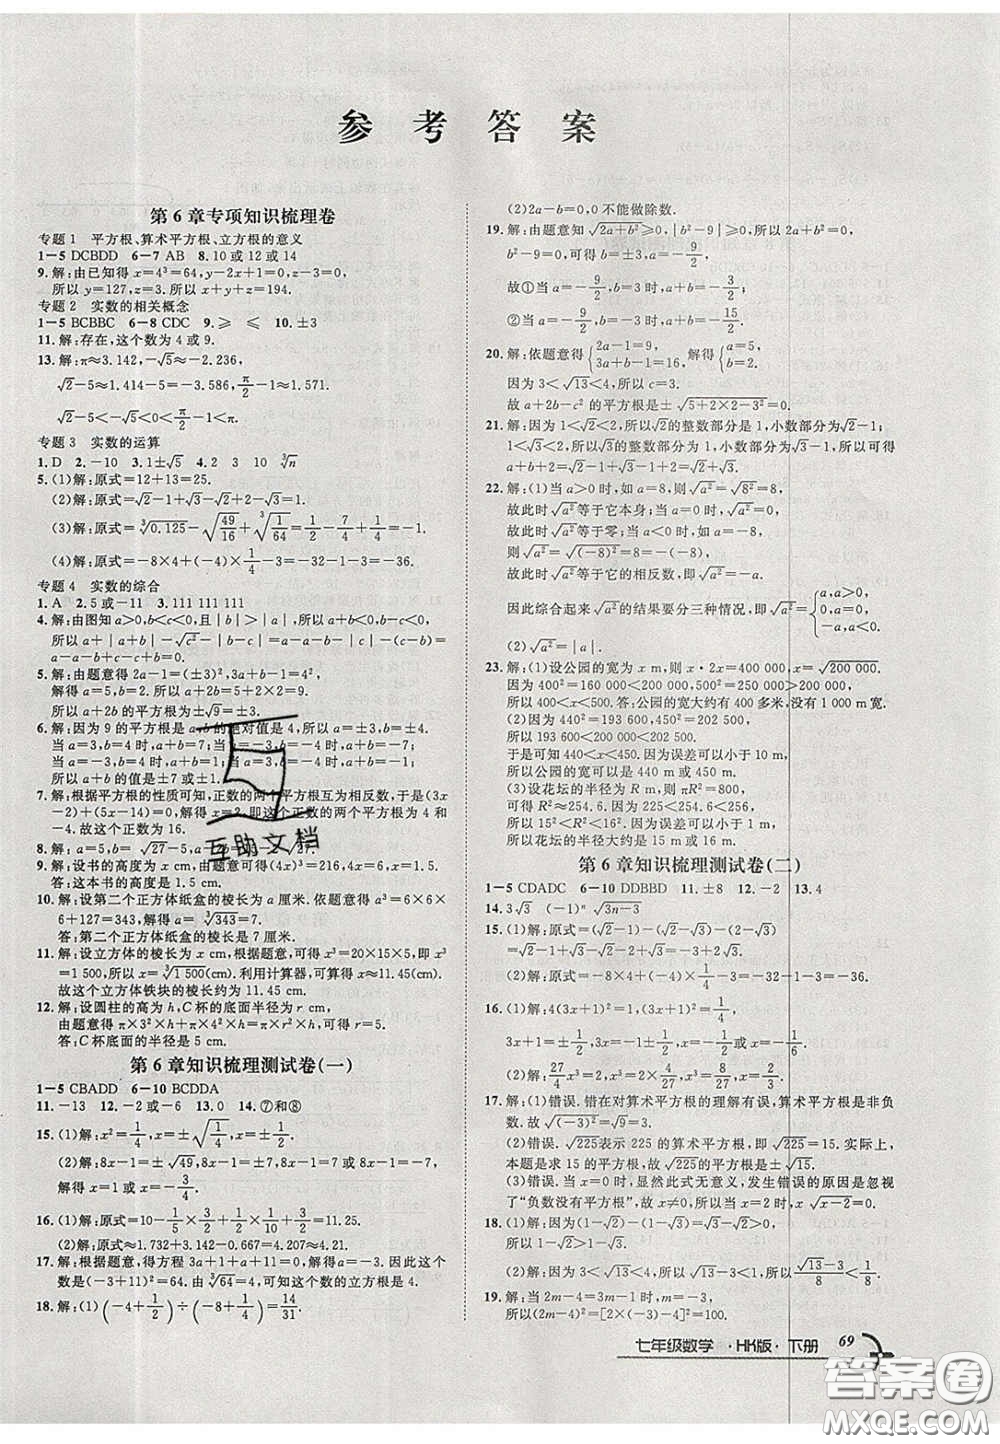 参 考 答 案
第6章专项知识梳理卷
专题1 平方根、算术平方根、立方根的意义
1-5 DCBDD 6-7 AB 8.10或12或14
9.解:由已知得x=4³=64,y-2x+1=0,z=3,
所以y=127,z=3.所以x+y+z=194.
专题2 实数的相关概念
1-5 BCBBC 6-8 CDC 9.⩾ ⩽ 10.±3
11.解:存在,这个数为4或9.
13.解:π≈3.142,-√5≈-2.236,
√2-5≈1.414-5=-3.586,π/2-1≈1.571.
√2-5<-√5<0<π/2-1<π.
专题3 实数的运算
1.D 2.-10 3.1±√5 4.2 3 10 ∛n
5.(1)解:原式=12+13=25.
(2)解:原式=√2-1+√3-√2+2-√3=1.
(3)解:原式=∛0.125-√(49/16)+∛(1/64)=1/2-7/4+1/4=-1.
(4)解:原式=-8×4+(-4)×1/4-3=-32-1-3=-36.
专题4 实数的综合
1.A 2.5或-11 3.111 111 111
4.解:由图知a>0,b<c<0,且|b|>|a|,所以a+b<0,
所以a+|a+b|-√c²-|b-c|=a-a-b-|c|-(-b+c)=
-b+c+b-c=0.
5.解:由题意得2a-1=(±3)²,3a+b-1=4²,
解得a=5,b=2.所以a+2b=5+2×2=9.
所以a+2b的平方根为±√9=±3.
6.解:因为9的平方根是a,b的绝对值是4,所以a=±3,b=±4.
当a=3,b=4时,a+b=7;当a=-3,b=-4时,a+b=-7;
当a=3,b=-4时,a+b=-1;当a=-3,b=4时,a+b=1.
所以a+b的值是±7或±1.
7.解:根据平方根的性质可知,正数的两个平方根互为相反数,于是(3x
-2)+(5x-14)=0,解得x=2.即这个正数的两个平方根为4和
-4.故这个正数为16.
8.解:a=5,b=
9.解:设书的高度为x cm,由题意可得(4x)³=216,4x=6,x=1.5.
答:这本书的高度是1.5 cm.
10.解:设第二个正方体纸盒的棱长为a厘米.依题意得a³=6×6×
6+127=343,所以a=∛343=7.
答:第二个正方体纸盒的棱长是7厘米.
11.解:设立方体的棱长为x cm,根据题意,可得x³=20×15×5,即
x³=1 500,所以x=∛1 500(cm).利用计算器,可得x≈11.45(cm).
故这个立方体铁块的棱长约为11.45 cm.
12.解:设圆柱的高为h,C杯的底面半径为r cm,
由题意得π×3²×h+π×4²×h=π×r²×h,可得r=5.
答:C杯底面的半径是5 cm.
第6章知识梳理测试卷(一)
1-5 CBADD 6-10 BCDDA
11.-13 12.-2或-6 13.0 14.⑦和⑧
15.(1)解:x²=1/4,x=±√(1/4),x=±1/2.
(2)解:8x-1=±√49,8x-1=±7,8x-1=7或8x-1=-7,
解得x=1或x=-3/4.
16.(1)解:原式=10-1/5×3/2+1/2×1/10+3/2=11.25.
(2)解:原式≈1.732+3.142-0.667=4.207≈4.21.
17.解:根据题意,得方程3a+1+a+11=0,解得a=-3.因此这个
数是(-3+11)²=64.由于∛64=4,知这个数的立方根是4.
18.解:(1)(-4+1/2)÷(-8+1/4)=14/31.
(2)2a-b=0,0不能做除数.
19.解:由题意知√(2a+b²)⩾0,|b²-9|⩾0,所以2a+b²=0,
b²-9=0,可得b=±3,a=-9/2,
故①当a=-9/2,b=3时,a+b=-3/2;
②当a=-9/2,b=-3时,a+b=-15/2.
20.解:依题意得{2a-1=9, 3a+b-1=16, 解得{a=5, b=2.
因为3<√13<4,所以c=3.
故a+2b-c²的平方根是±√(5+2×2-3²)=0.
21.解:因为1<√2<2,所以√2的整数部分是1,小数部分为√2-1,
1<√3<2,所以√3的整数部分为1,小数部分为√3-1,所以可得
a+b+2=√2-1+√3-1+2=√2+√3.
22.解:(1)当a>0时,如a=8,则√a²=√8²=8.
故此时√a²等于它本身;当a=0时,√a²=0,
故此时√a²等于零;当a<0时,如a=-8,
则√a²=√(-8)²=8,
故此时√a²等于它的相反数,即√a²=-a(a<0).
因此综合起来√a²的结果要分三种情况,即√a²={a,a>0, 0,a=0, -a,a<0.
(2)√a²=|a|.
23.解:(1)设公园的宽为x m,则x·2x=400 000,x=√200 000.
因为400²=160 000<200 000,500²=250 000>200 000,
所以400<x<500.答:公园的宽大约有400多米,没有1 000米宽.
(2)因为440²=193 600,450²=202 500,
所以193 600<200 000<202 500,
于是可知440<x<450.因为误差可以小于10 m,
所以公园的宽可以是440 m或450 m.
(3)设花坛的半径为R m,则πR²=800,
可得R²≈254.6.因为225<254.6<256,
所以15²<R²<16².因为误差可以小于1 m,
所以花坛的半径大约是15 m或16 m.
第6章知识梳理测试卷(二)
1-5 CDADC 6-10 DDBBD 11.±8 12.-2 13.4
14.3√3 (-1)ⁿ√(3n-3)
15.(1)解:原式=(1-√2)-(√2-√3)-(2-√3)
=1-√2-√2+√3-2+√3=-1-2√2+2√3.
(2)解:原式=-8×4+(-4)×1/4-3=-32-1-3=-36.
16.(1)解:4(3x+1)²=1,(3x+1)²=1/4,
3x+1=±1/2,3x=-1±1/2,x=-1/2或x=-1/6.
(2)解:27/4x³=2,x³=8/27,x=2/3.
17.解:(1)错误.错在对算术平方根的理解有误,算术平方根是非负
数.故√(-3)²=√9=3.
(2)错误.√225表示225的算术平方根,即√225=15.实际上,
本题是求15的平方根,故√225的平方根是±√15.
(3)错误.当x=0时,此式无意义,发生错误的原因是忽视
了“负数没有平方根”,故x≠0,所以当x=2时,x√(x-2)=0.
18.解:(1)因为(1-√2)-(1-√3)=√3-√2>0,
所以1-√2>1-√3.
(2)解:因为3<√13<4,所以√13-3<1.所以(√13-3)/8<1/8.
19.解:当2m-4=3m-1时,m=-3,
所以(2m-4)²=[2×(-3)-4]²=100.
七年级数学·HK版·下册 69
互助文档
答案圈
MXQE.COM